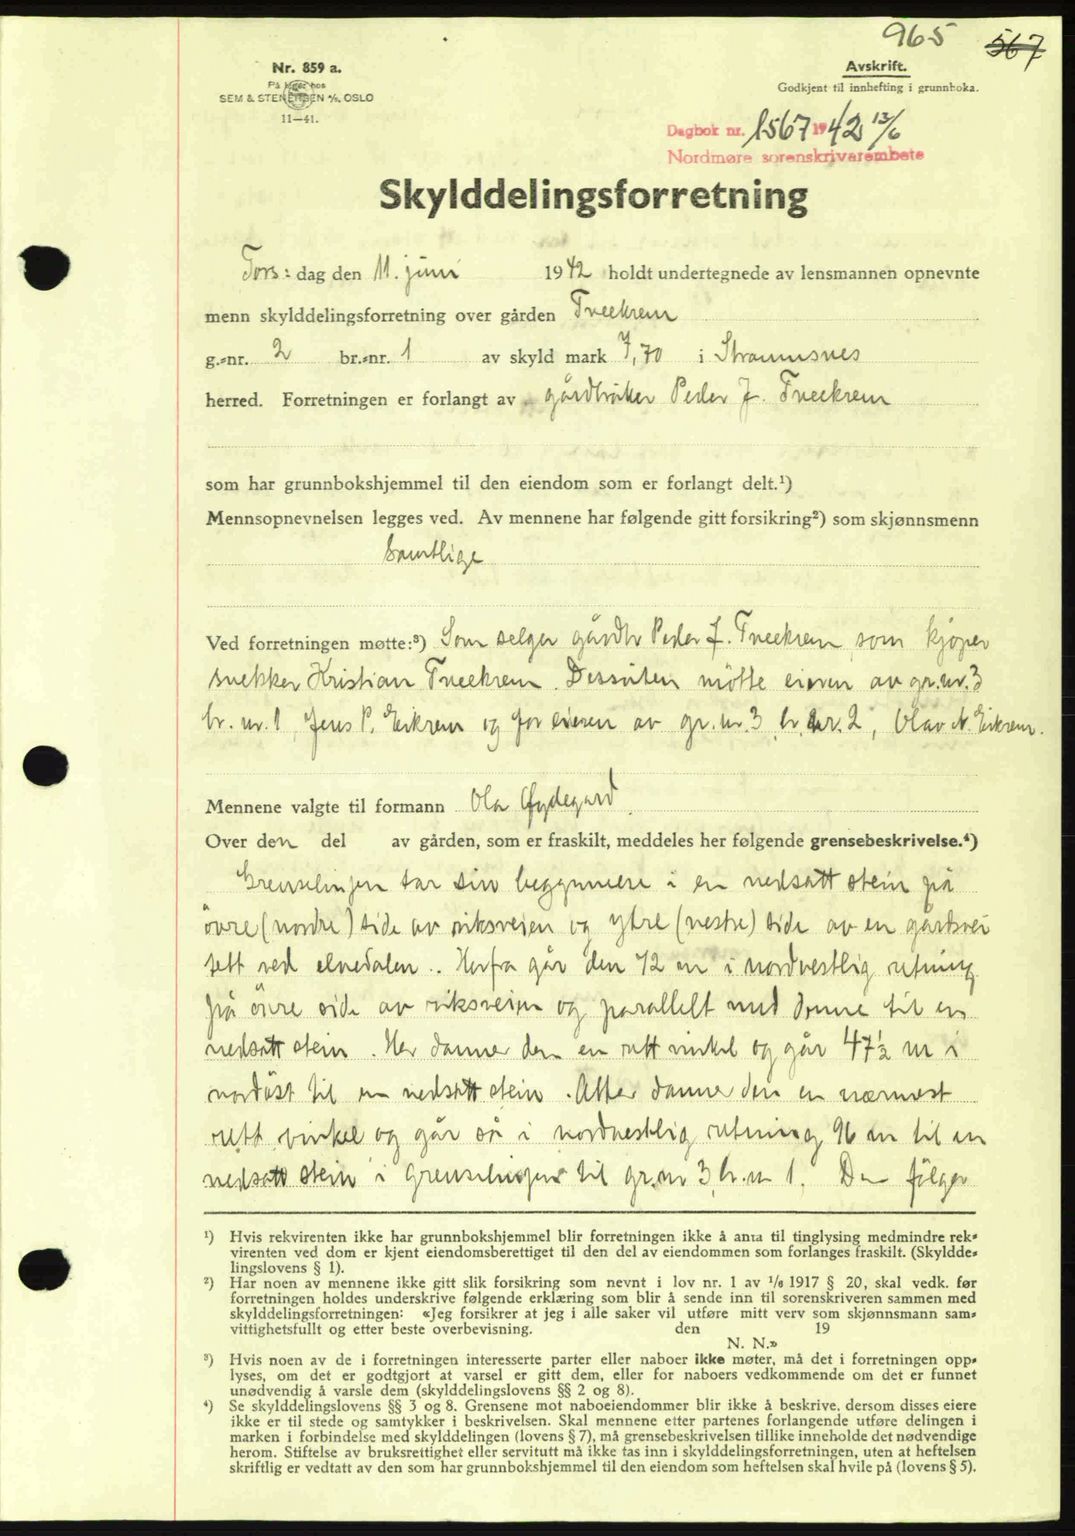 965 567
Nr. 859 a.
På lager hos
SEM & STENERSEN A/S, OSLO
11—41.
Avskrift.
Godkjent til innhefting i grunnboka.
Dagbok nr. 1567 1942 13/6
Nordmøre sorenskriverembete
Skylddelingsforretning
Tors: dag den 11. juni 1942 holdt undertegnede av lensmannen opnevnte
menn skylddelingsforretning over gården Tveekrem
g.-nr. 2 br.-nr. 1 av skyld mark 7,70 i Straumsnes
herred. Forretningen er forlangt av gårdbruker Peder J. Tveekrem
som har grunnbokshjemmel til den eiendom som er forlangt delt.¹)
Mennsopnevnelsen legges ved. Av mennene har følgende gitt forsikring²) som skjønnsmenn
Samtlige
Ved forretningen møtte:³) Som selger gårdbr Peder J. Tveekrem, som kjøper
snekker Kristian Tveekrem. Dessuten møtte eieren av gr.nr. 3
br. nr. 1, Jens P. Eikrem og for eieren av gr. nr. 3 br. nr. 2, Olav N. Eikrem.
Mennene valgte til formann Ola Øydegard
Over den del av gården, som er fraskilt, meddeles her følgende grensebeskrivelse.⁴)
Grenselinjen tar sin begynnere i en nedsatt stein på
övre (nordre) side av riksveien og ytre (vestre) side av en gårdsvei
tett ved elvedalen.. Herfra går den 72 m i nordvestlig retning
på övre side av riksveien og parallelt med denne til en
nedsatt stein. Her danner den en rett vinkel og går 47½ m i
nordöst til en nedsatt stein. Atter danner den en nærmest
rett vinkel og går så i nordvestlig retning 96 m til en
nedsatt stein i grenselinjen til gr.nr 3 br.nr 1. Den følger
¹) Hvis rekvirenten ikke har grunnbokshjemmel blir forretningen ikke å anta til tinglysing medmindre rek-
virenten ved dom er kjent eiendomsberettiget til den del av eiendommen som forlanges fraskilt. (Skyldde-
lingslovens § 1).
²) Har noen av mennene ikke gitt slik forsikring som nevnt i lov nr. 1 av 1/6 1917 § 20, skal vedk. før
forretningen holdes underskrive følgende erklæring som blir å sende inn til sorenskriveren sammen med
skylddelingsforretningen: «Jeg forsikrer at jeg i alle saker vil utføre mitt verv som skjønnsmann sam-
vittighetsfullt og etter beste overbevisning. den 19
N. N.»
³) Hvis noen av de i forretningen interesserte parter eller naboer ikke møter, må det i forretningen opp-
lyses, om det er godtgjort at varsel er gitt dem, eller for naboers vedkommende om det er funnet
unødvendig å varsle dem (skylddelingslovens §§ 2 og 8).
⁴) Se skylddelingslovens §§ 3 og 8. Grensene mot naboeiendommer blir ikke å beskrive, dersom disses eiere
ikke er til stede og samtykker i beskrivelsen. Skal mennene etter partenes forlangende utføre delingen i
marken i forbindelse med skylddelingen (lovens § 7), må grensebeskrivelsen tillike inneholde det nødvendige
herom. Stiftelse av bruksrettighet eller servitutt må ikke tas inn i skylddelingsforretningen, uten at heftelsen
skriftlig er vedtatt av den som har grunnbokshjemmel til den eiendom som heftelsen skal hvile på (lovens § 5).